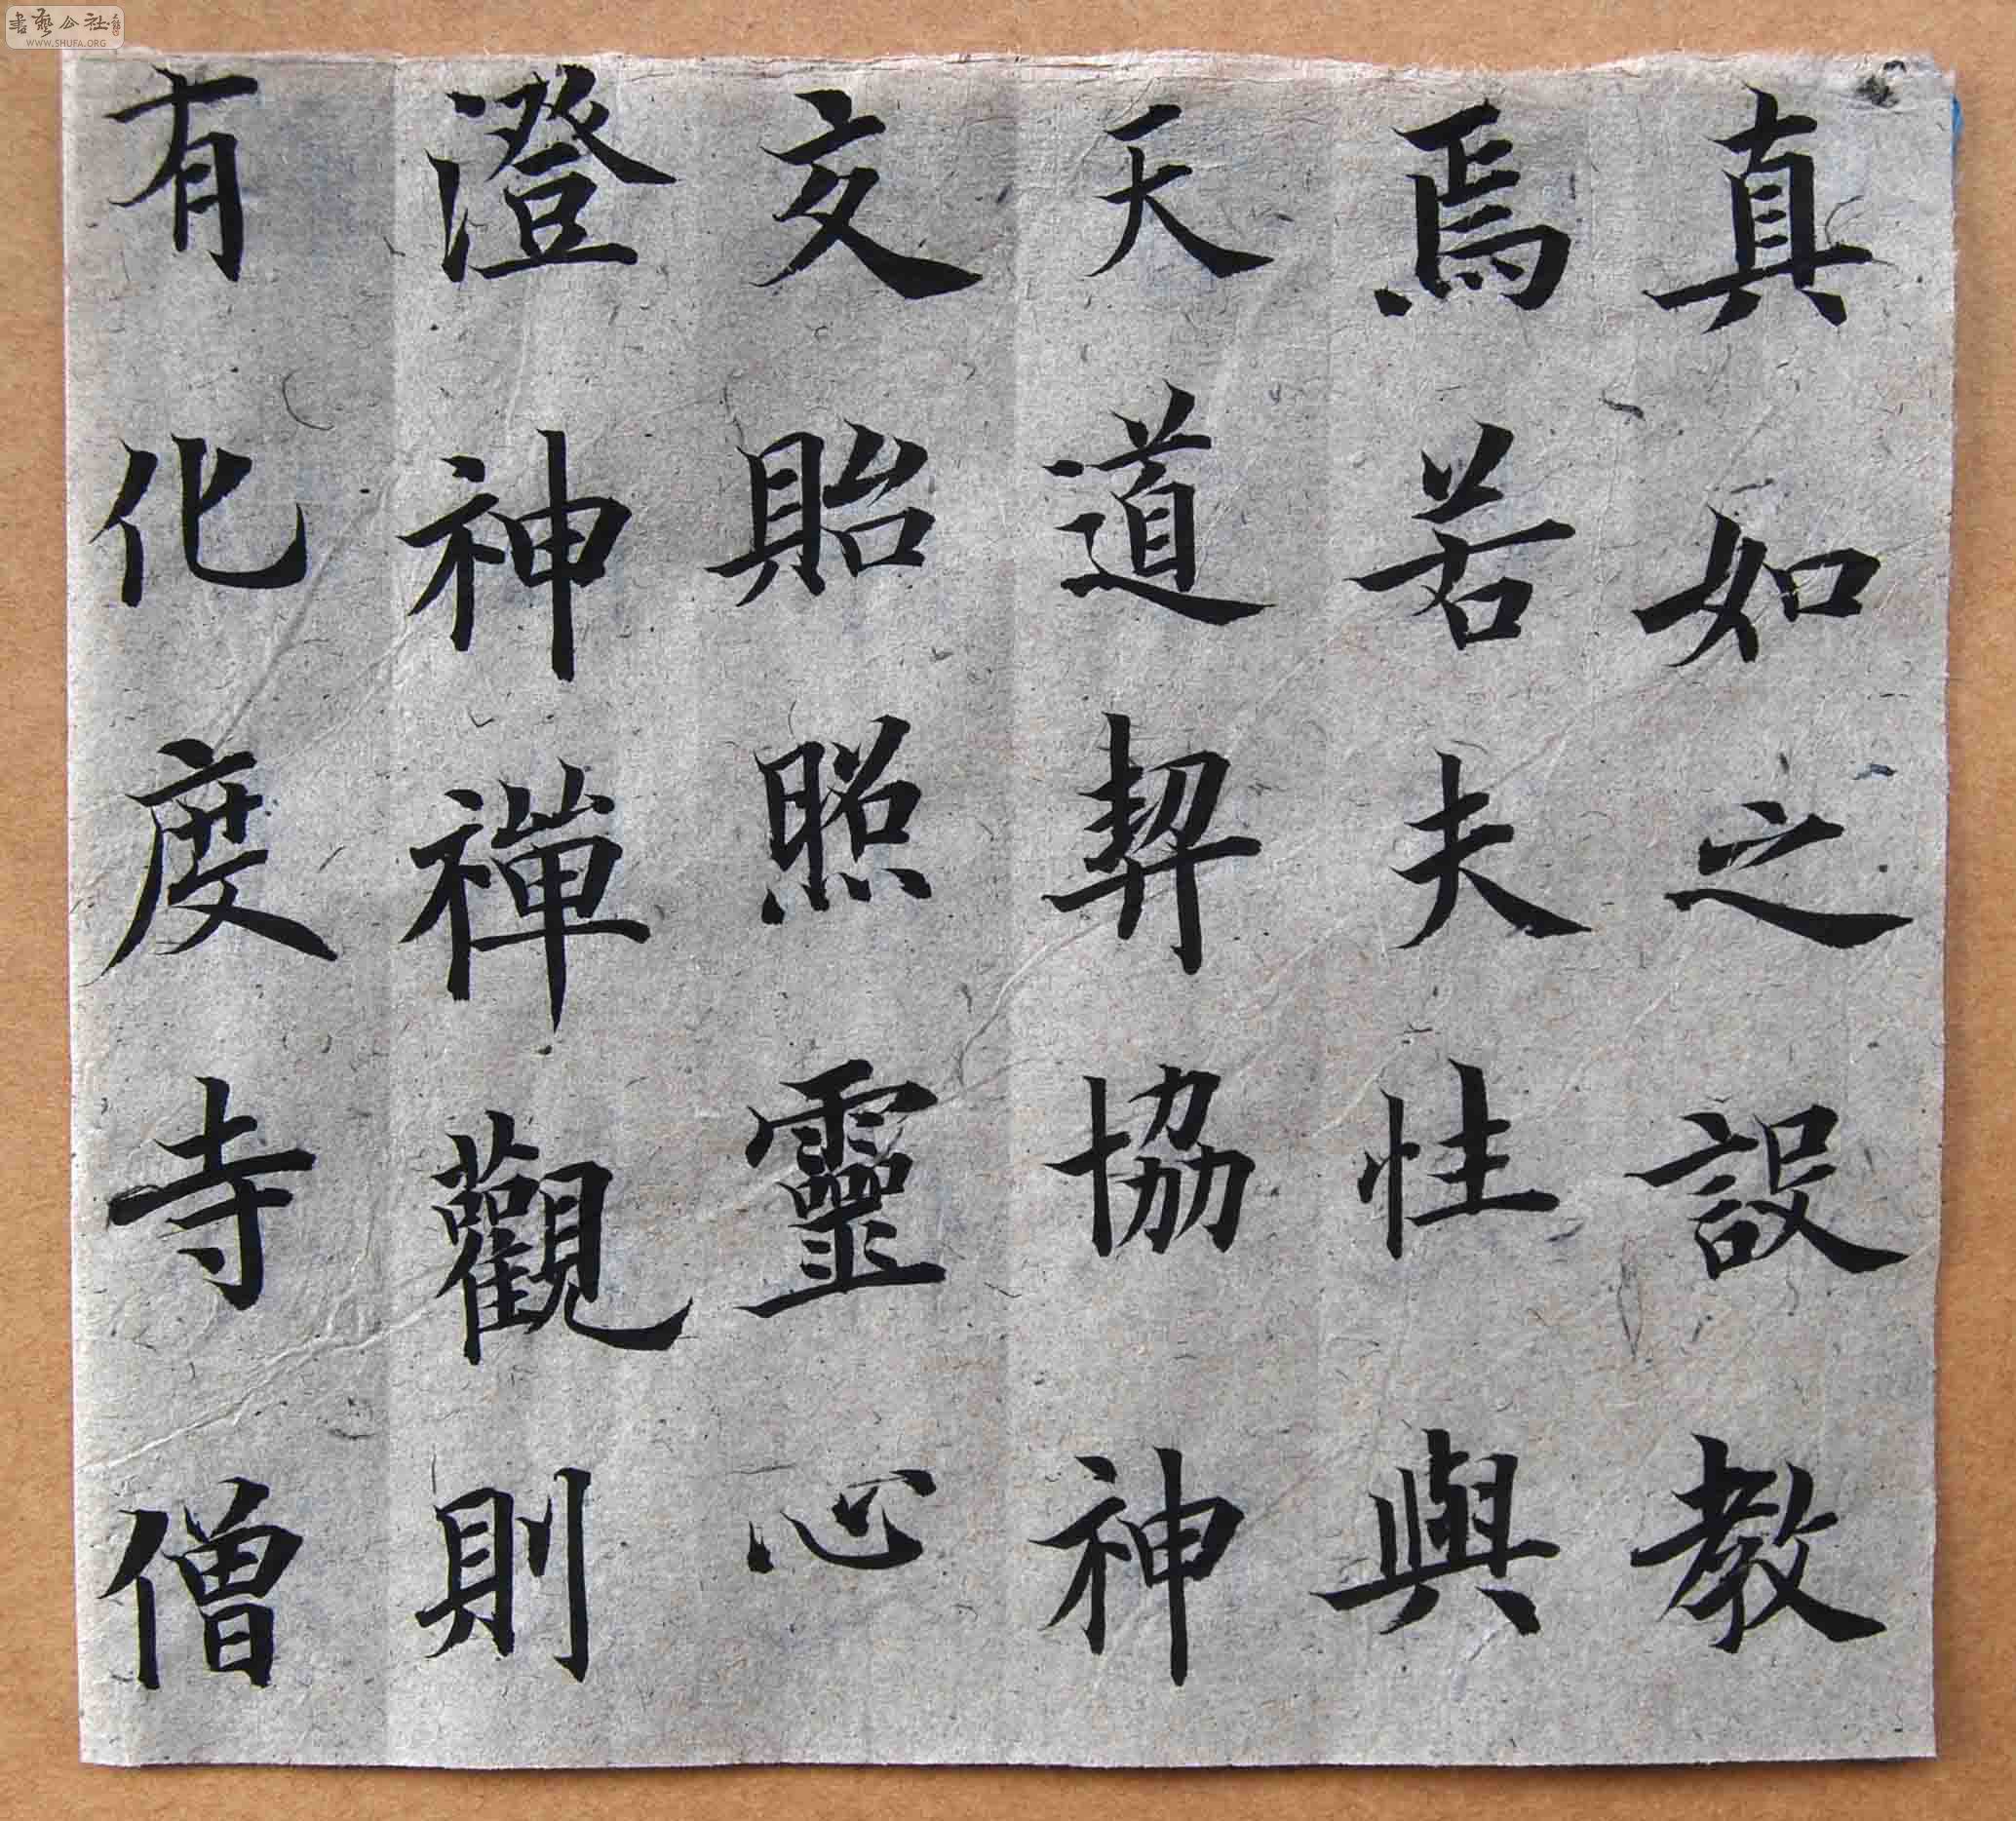 真如之設教
焉若夫性與
天道契協神
交貽照靈心
澄神禪觀則
有化度寺僧
書藝公社
WWW.SHUFA.ORG